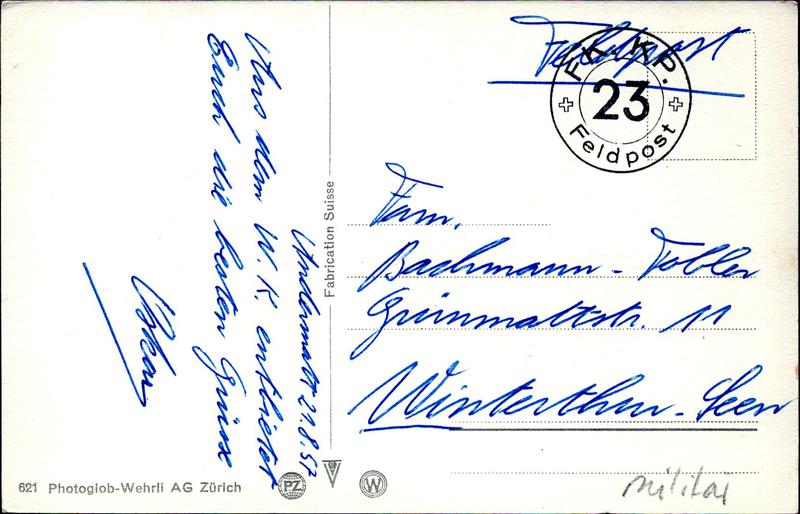 Andermatt 21.8.57
Aus dem W.K. entbietet
Euch die besten Grüsse
Oskar
Feldpost
FK. KP.
23
Feldpost
Fam.
Bachmann-Tobler
Grünmattstr. 11
Winterthur-Seen
militär
Fabrication Suisse
621 Photoglob-Wehrli AG Zürich
PZ
W